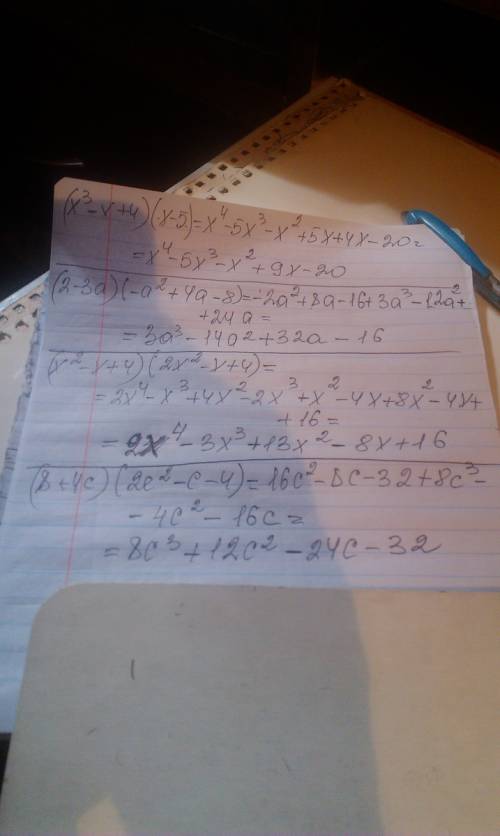 (x³-x+4)(x-5)=x⁴-5x³-x²+5x+4x-20=
=x⁴-5x³-x²+9x-20
(2-3a)(-a²+4a-8)=-2a²+8a-16+3a³-12a²+
+24a=
=3a³-14a²+32a-16
(x²-x+4)(2x²-x+4)=
=2x⁴-x³+4x²-2x³+x²-4x+8x²-4x+
+16=
=2x⁴-3x³+13x²-8x+16
(8+4c)(2c²-c-4)=16c²-8c-32+8c³-
-4c²-16c=
=8c³+12c²-24c-32